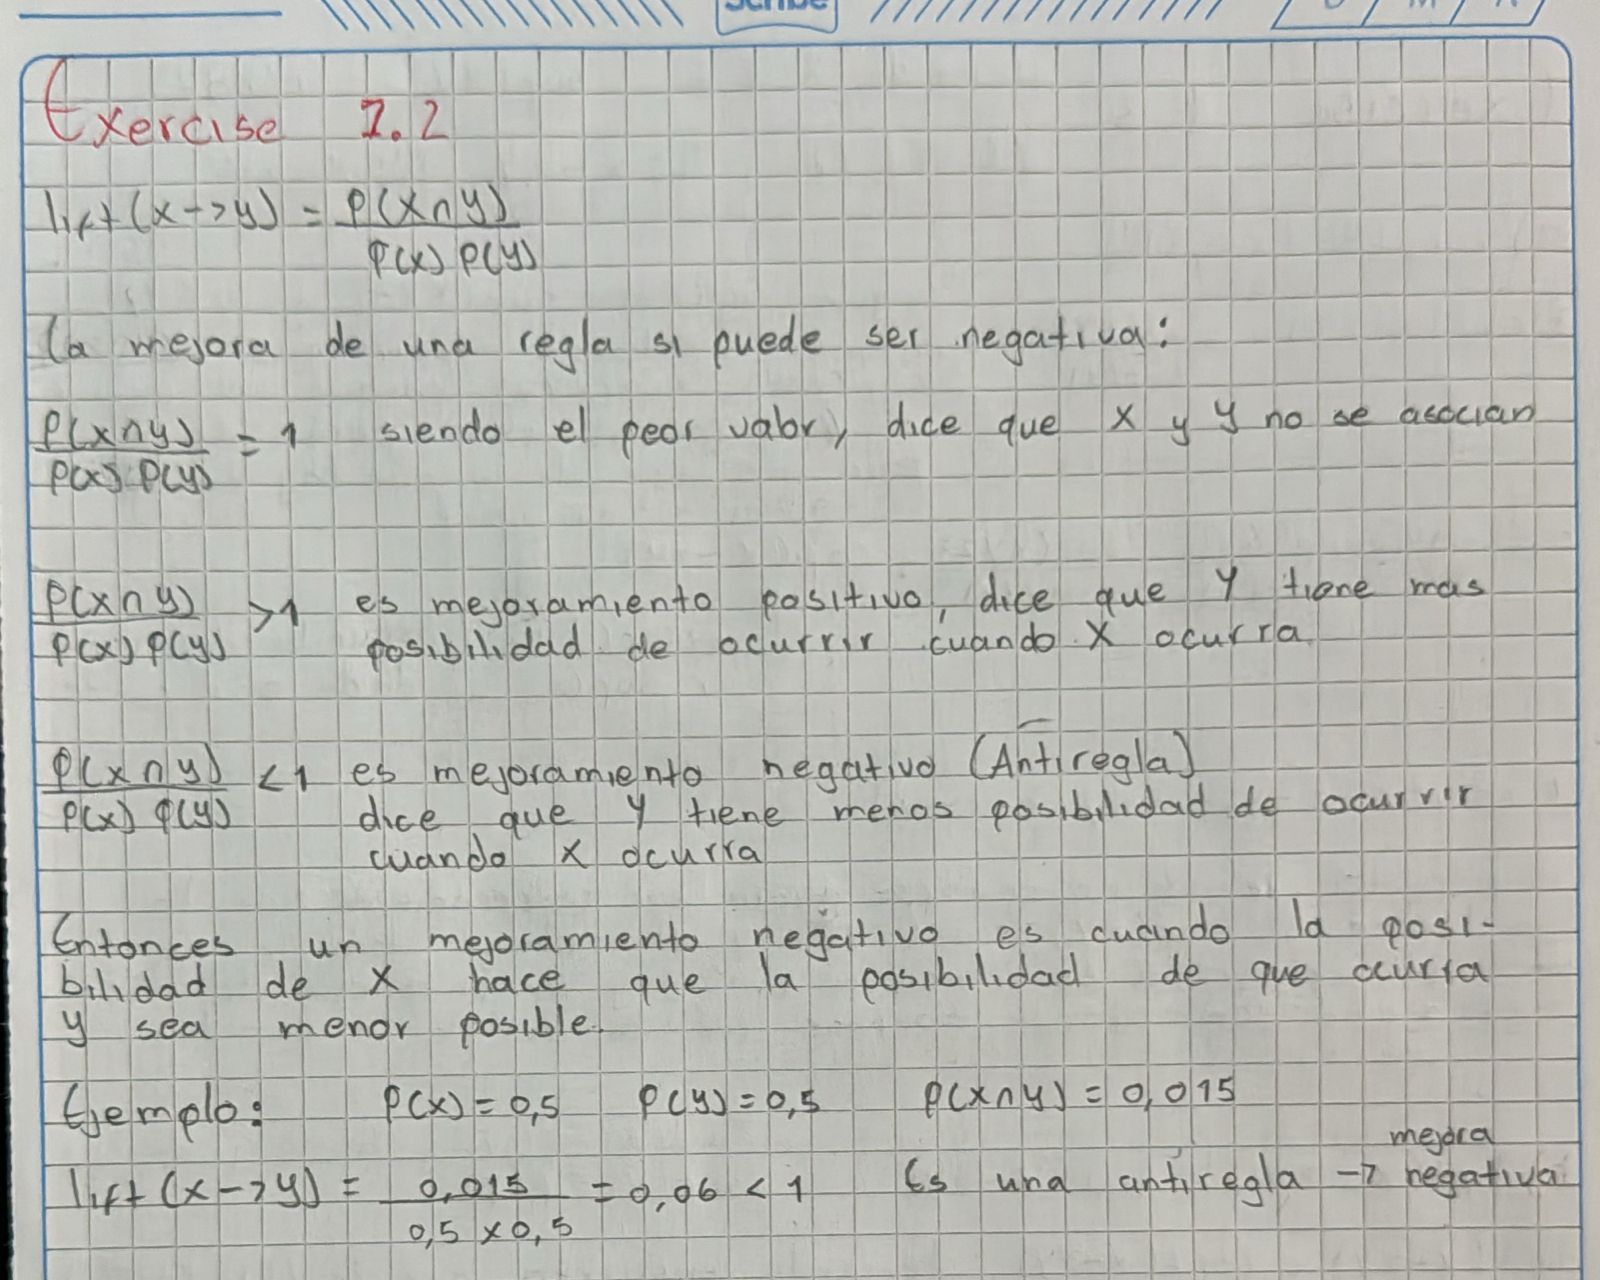 Scribe
Exercise 7.2
lift(x->y) = P(X∩Y)
P(X) P(Y)
La mejora de una regla si puede ser negativa:
P(X∩Y) = 1 siendo el peor valor, dice que X y Y no se asocian
P(X) P(Y)
P(X∩Y) >1 es mejoramiento positivo, dice que Y tiene mas
P(X) P(Y) posibilidad de ocurrir cuando X ocurra
P(X∩Y) <1 es mejoramiento negativo (Antiregla)
P(X) P(Y) dice que Y tiene menos posibilidad de ocurrir
cuando X ocurra
Entonces un mejoramiento negativo es cuando la posi-
bilidad de X hace que la posibilidad de que ocurra
Y sea menor posible.
Ejemplo: P(X)=0,5 P(Y)=0,5 P(X∩Y)=0,015
mejora
lift(x->y) = 0,015 = 0,06 < 1 Es una antiregla -> negativa
0,5 x 0,5